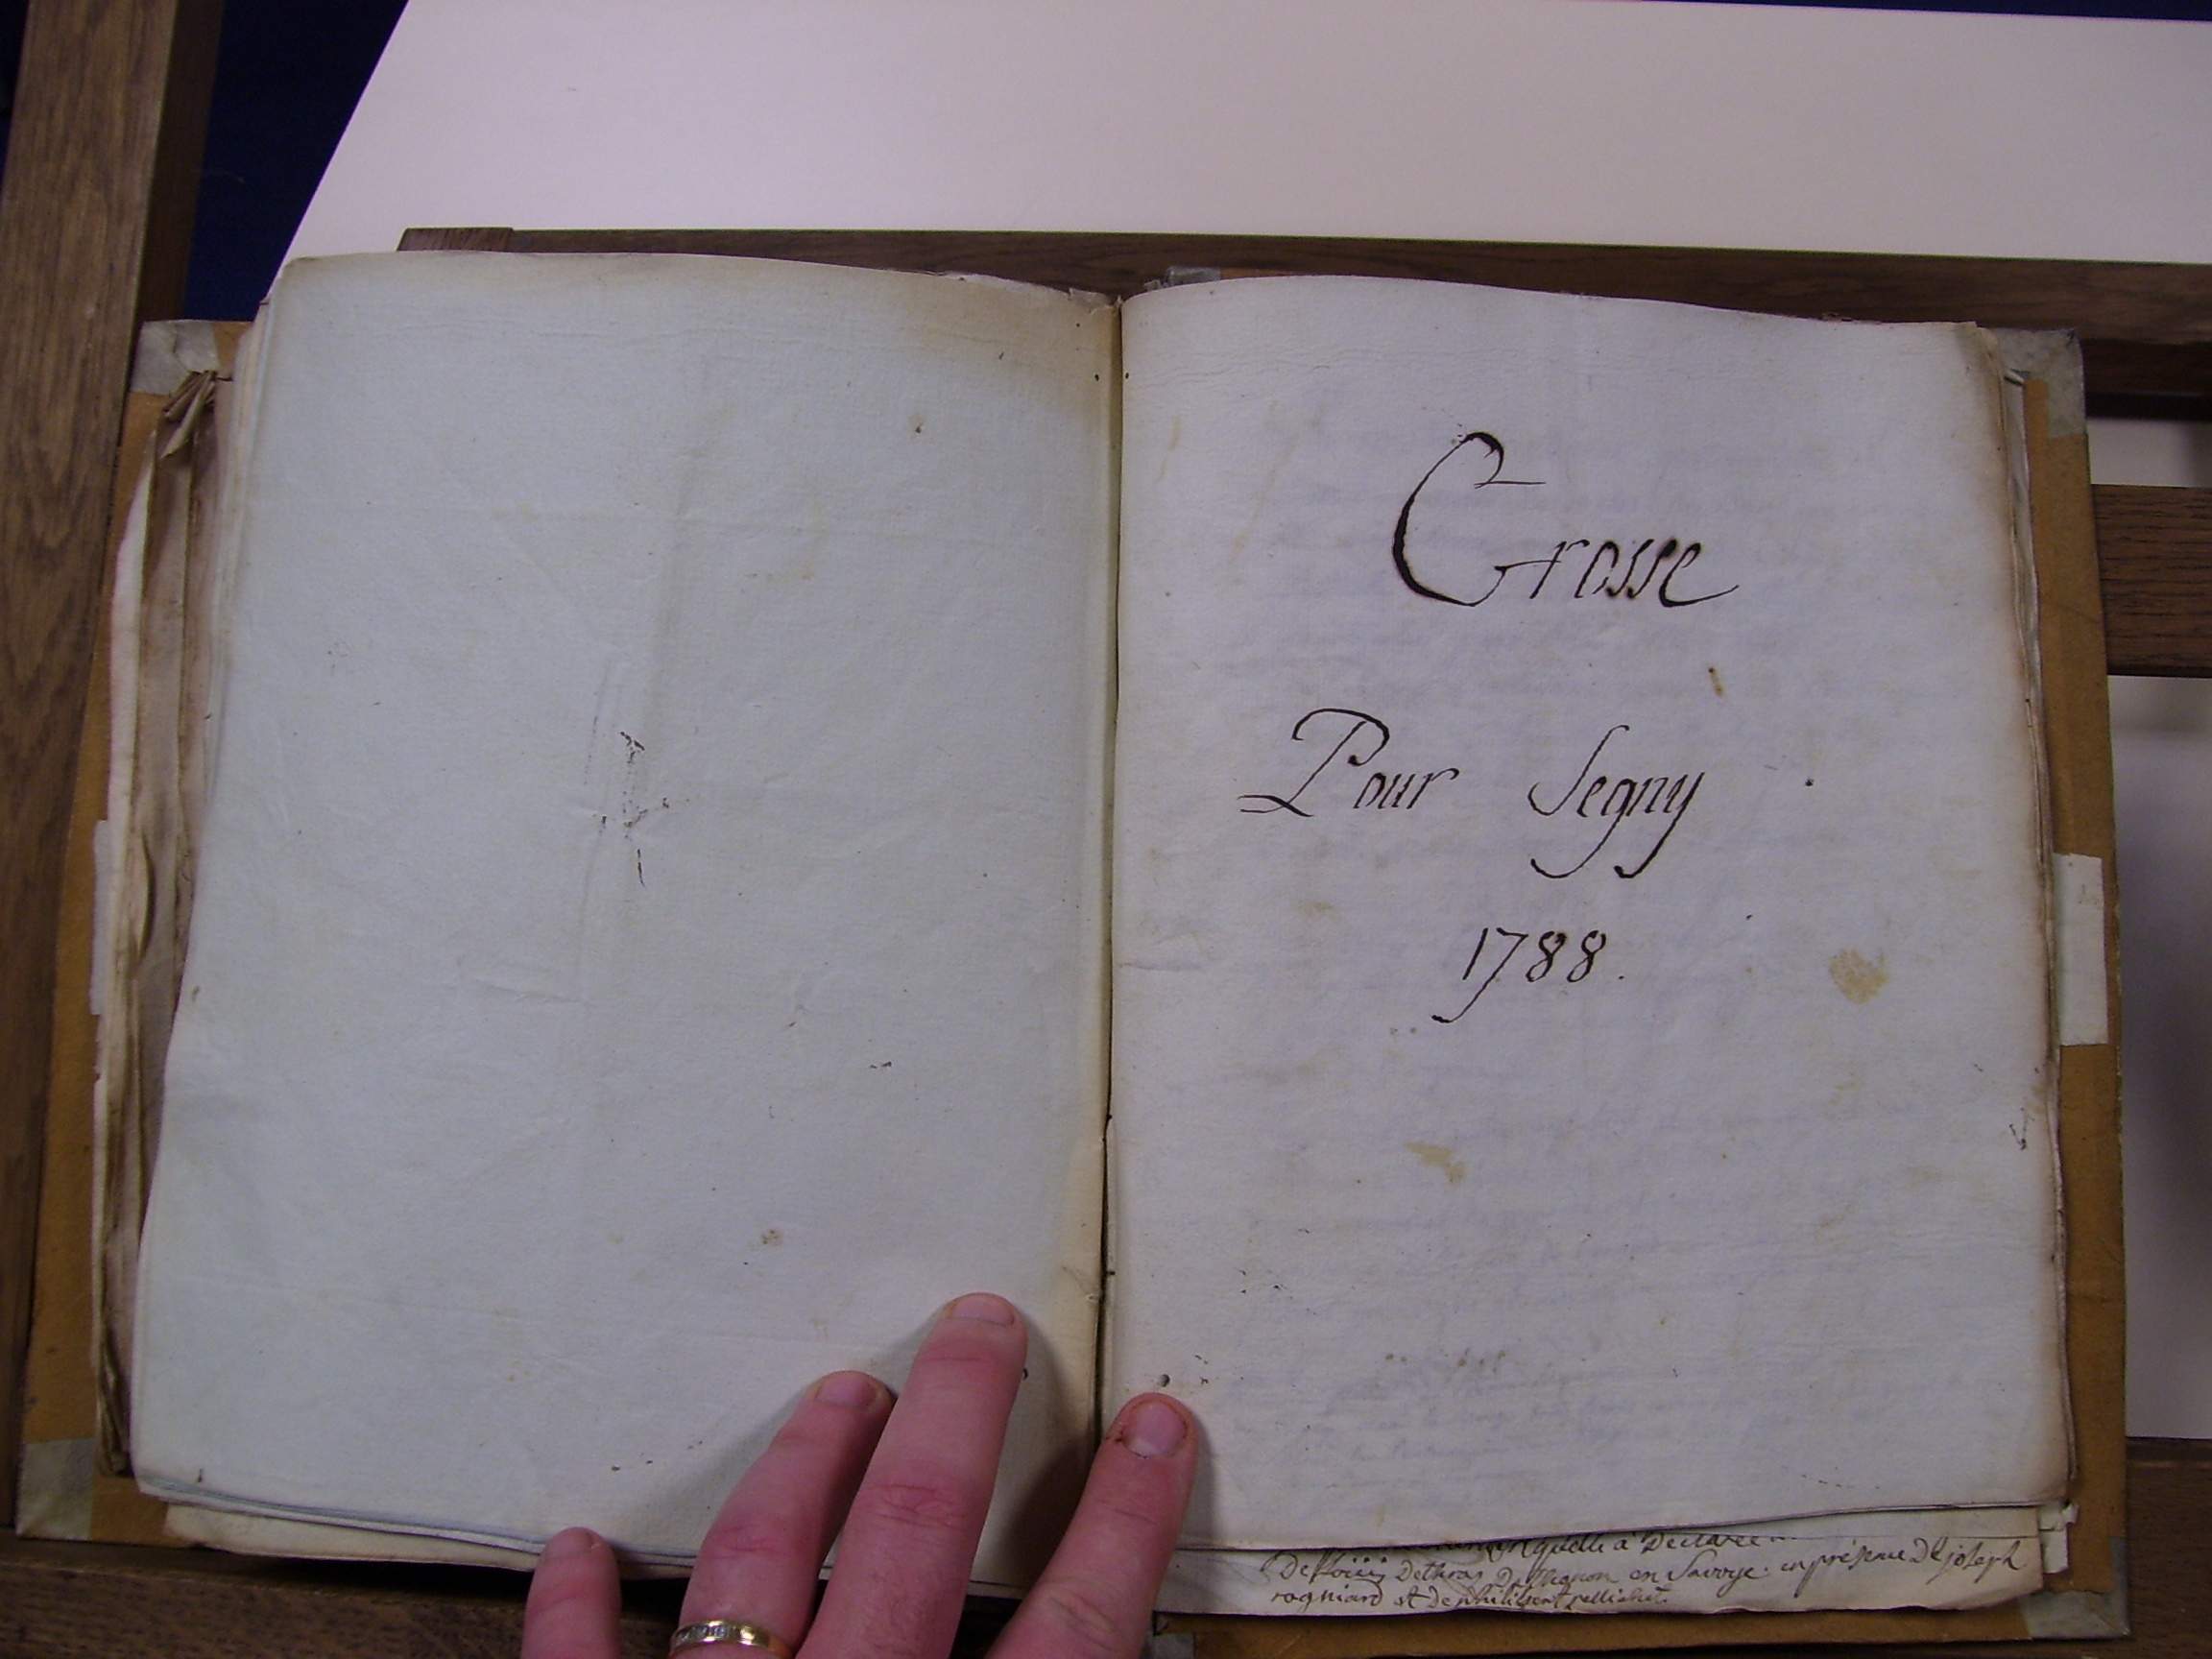 Grosse
Pour Segny
1788.
quelle a Declaree
en Savoye. en présence De joseph
rogniard et de philibert pellichet.